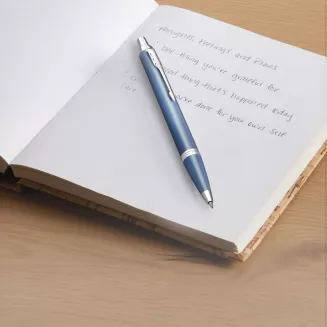 Thoughts, Feelings and Plans
One thing you're grateful for
good thing that's happened today
you've done for you own self